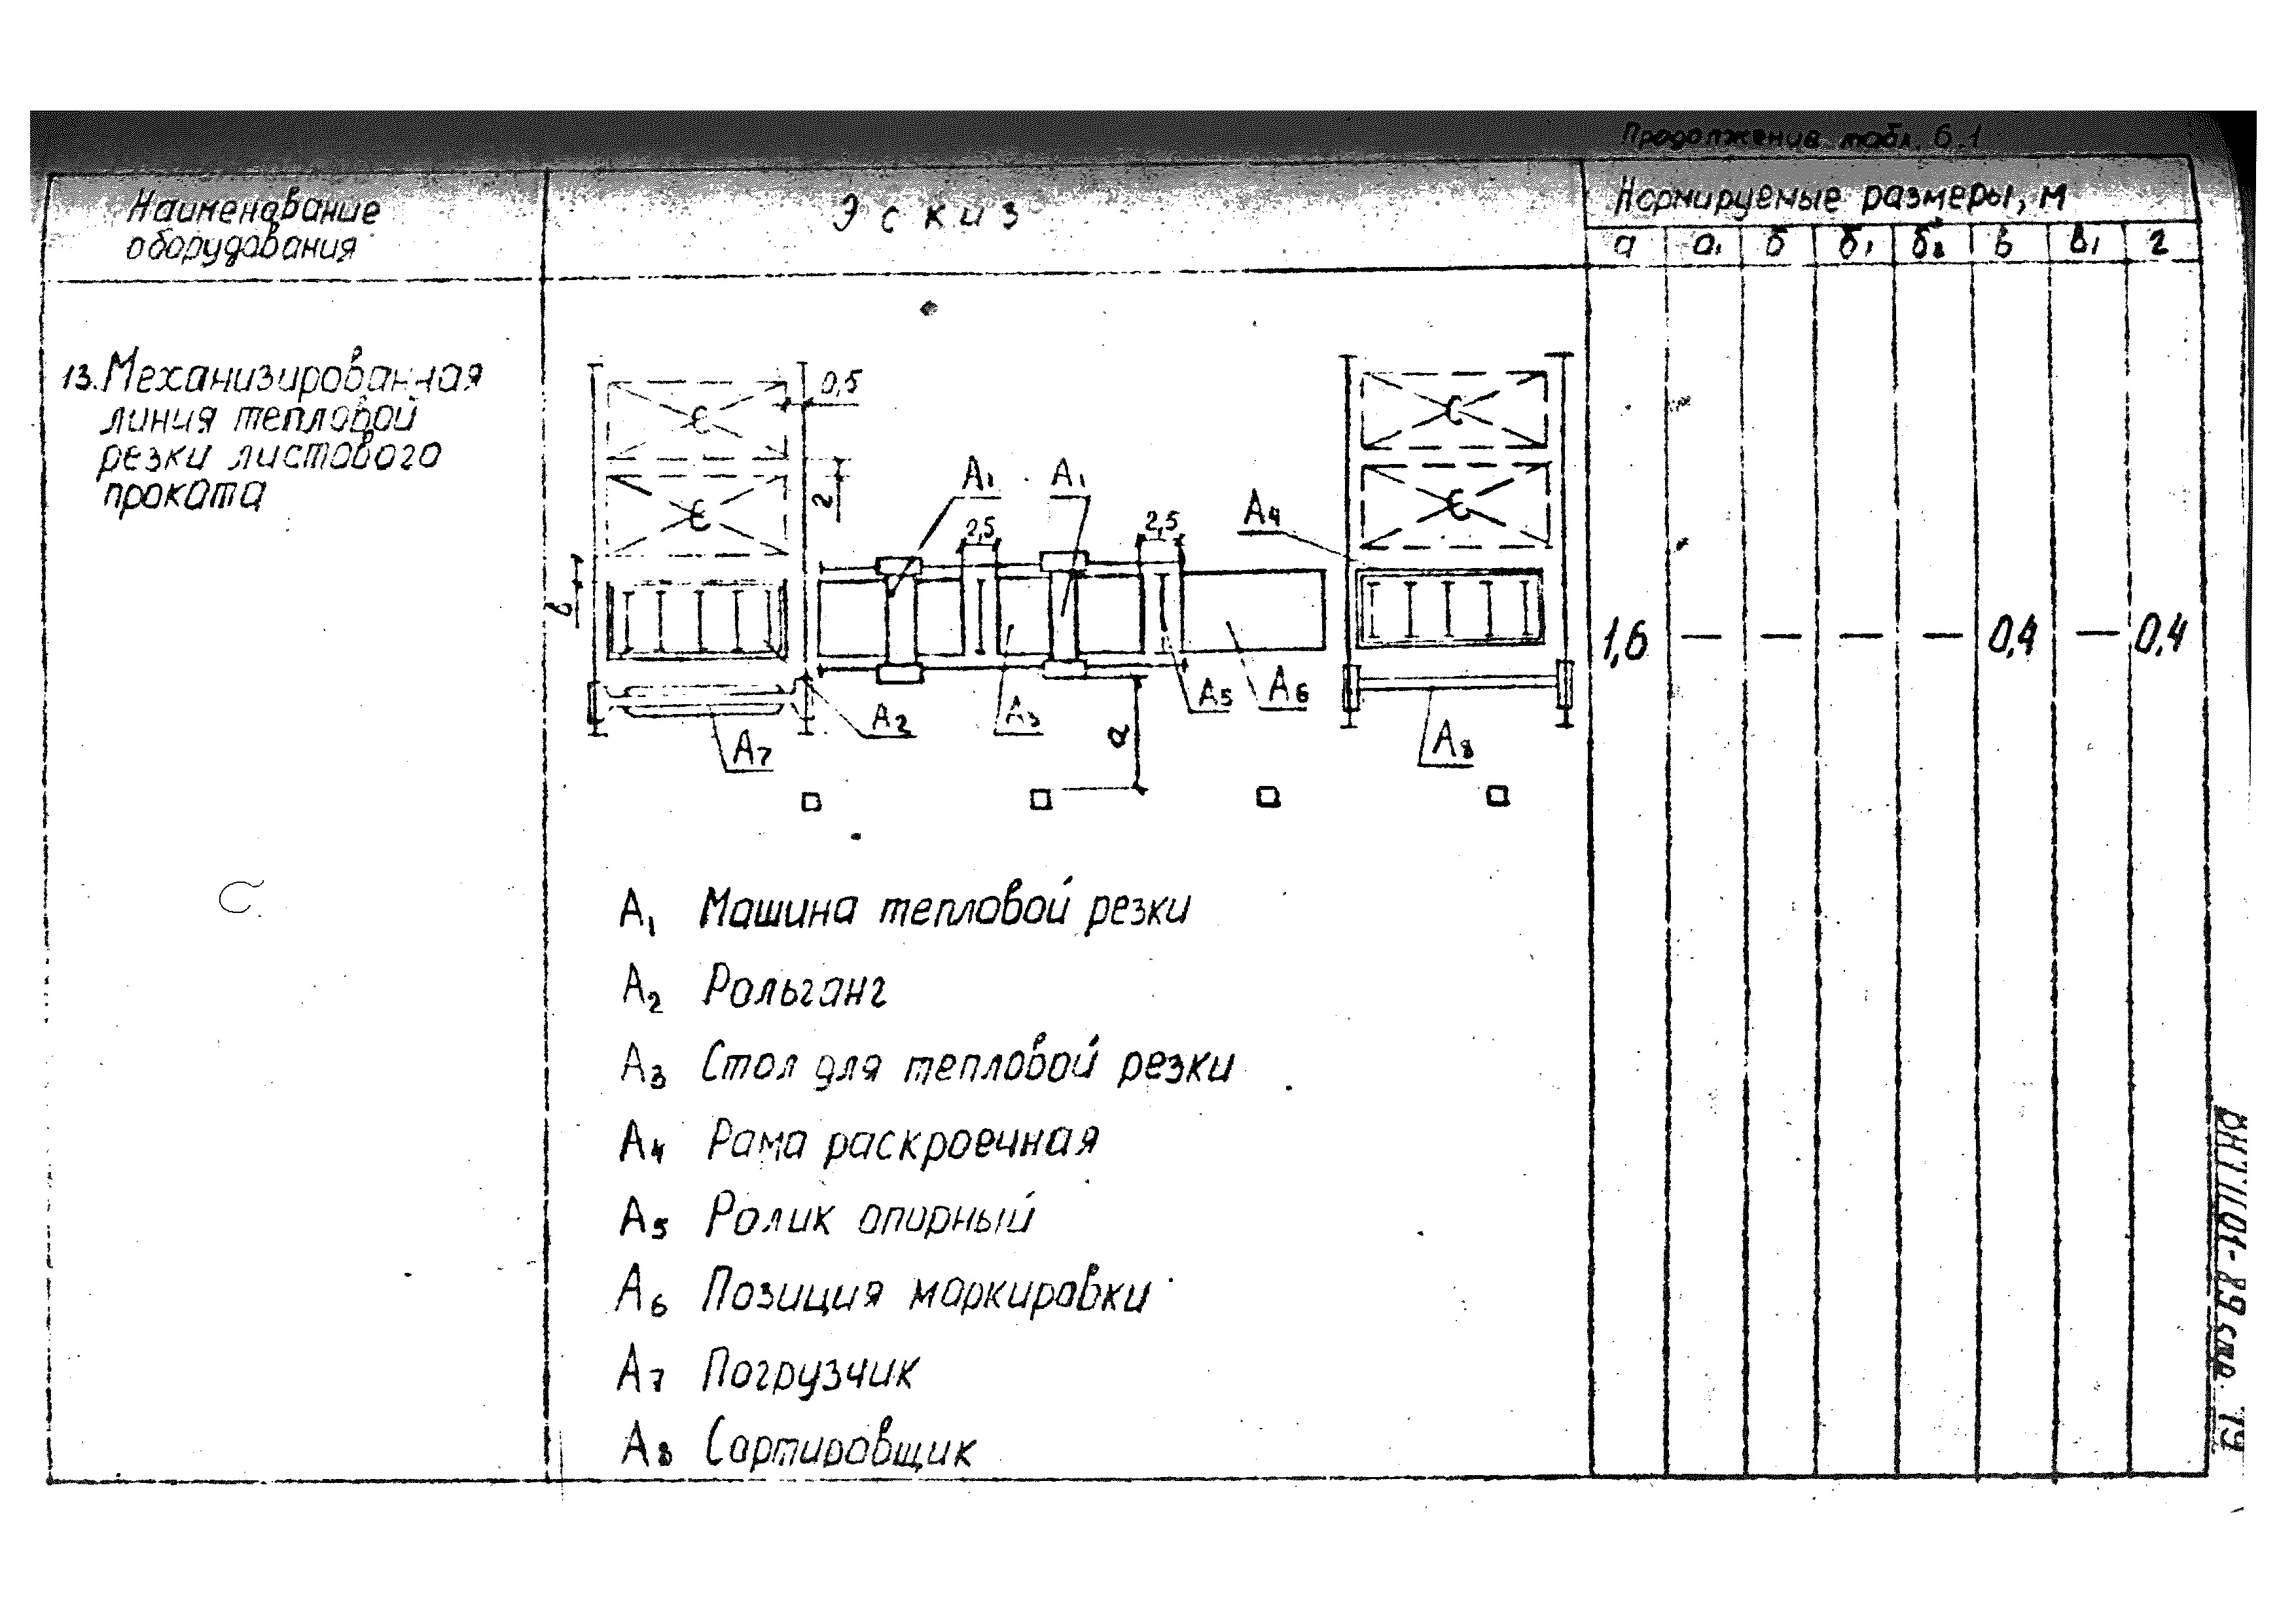 Продолжение табл. 6.1
Наименование
оборудования
Эскиз
Нормируемые размеры, м
а а₁ б б₁ б₂ в в₁ г
13. Механизированная
линия тепловой
резки листового
проката
0,5
С
С
С
С
г
А₁
А₁
2,5
2,5
А₄
в
А₂
А₃
А₅
А₆
А₇
А₈
а
1,6 — — — — 0,4 — 0,4
А₁ Машина тепловой резки
А₂ Рольганг
А₃ Стол для тепловой резки
А₄ Рама раскроечная
А₅ Ролик опорный
А₆ Позиция маркировки
А₇ Погрузчик
А₈ Сортировщик
ВНТП 01-89 стр. 79